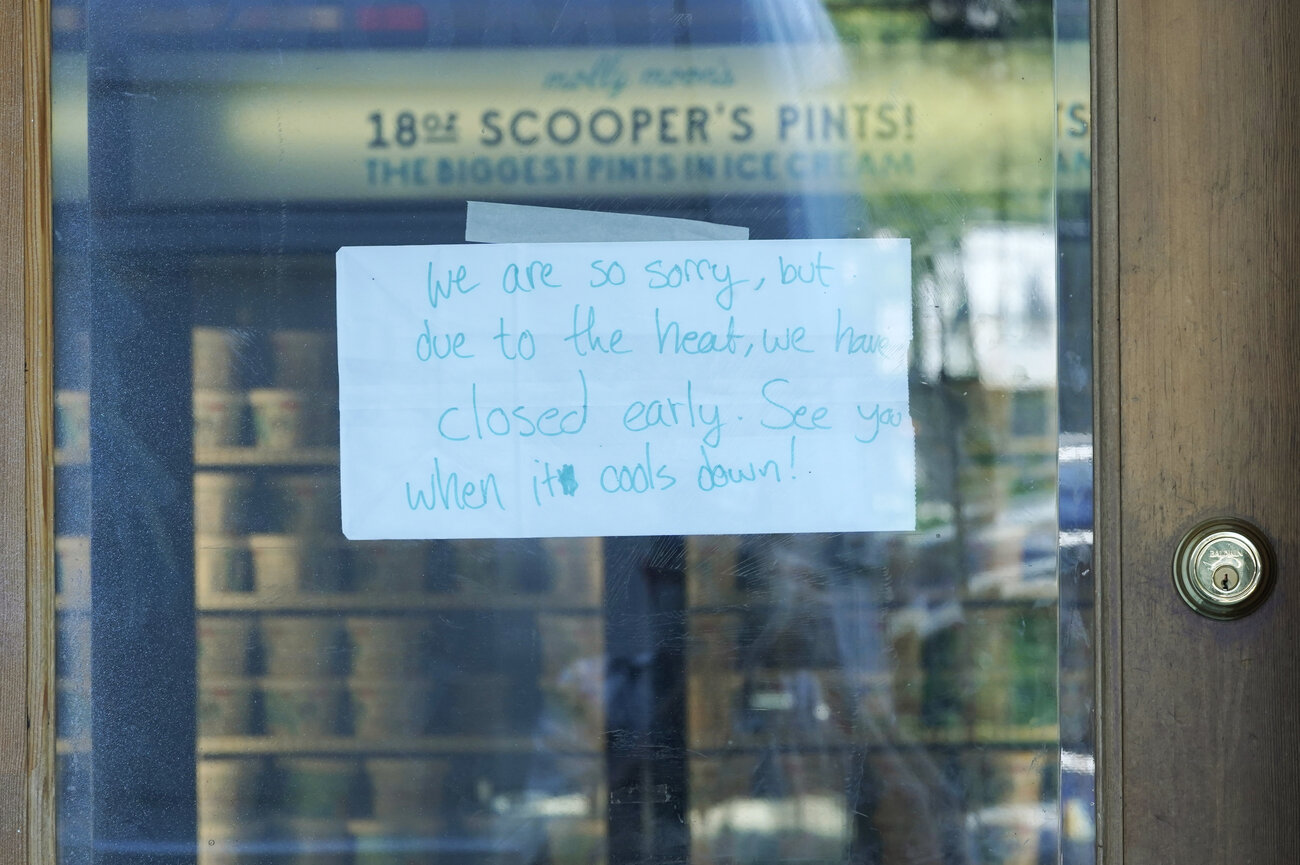 molly moon's
18oz SCOOPER'S PINTS!
THE BIGGEST PINTS IN ICE CREAM
We are so sorry, but
due to the heat, we have
closed early. See you
when it cools down!
BALDWIN